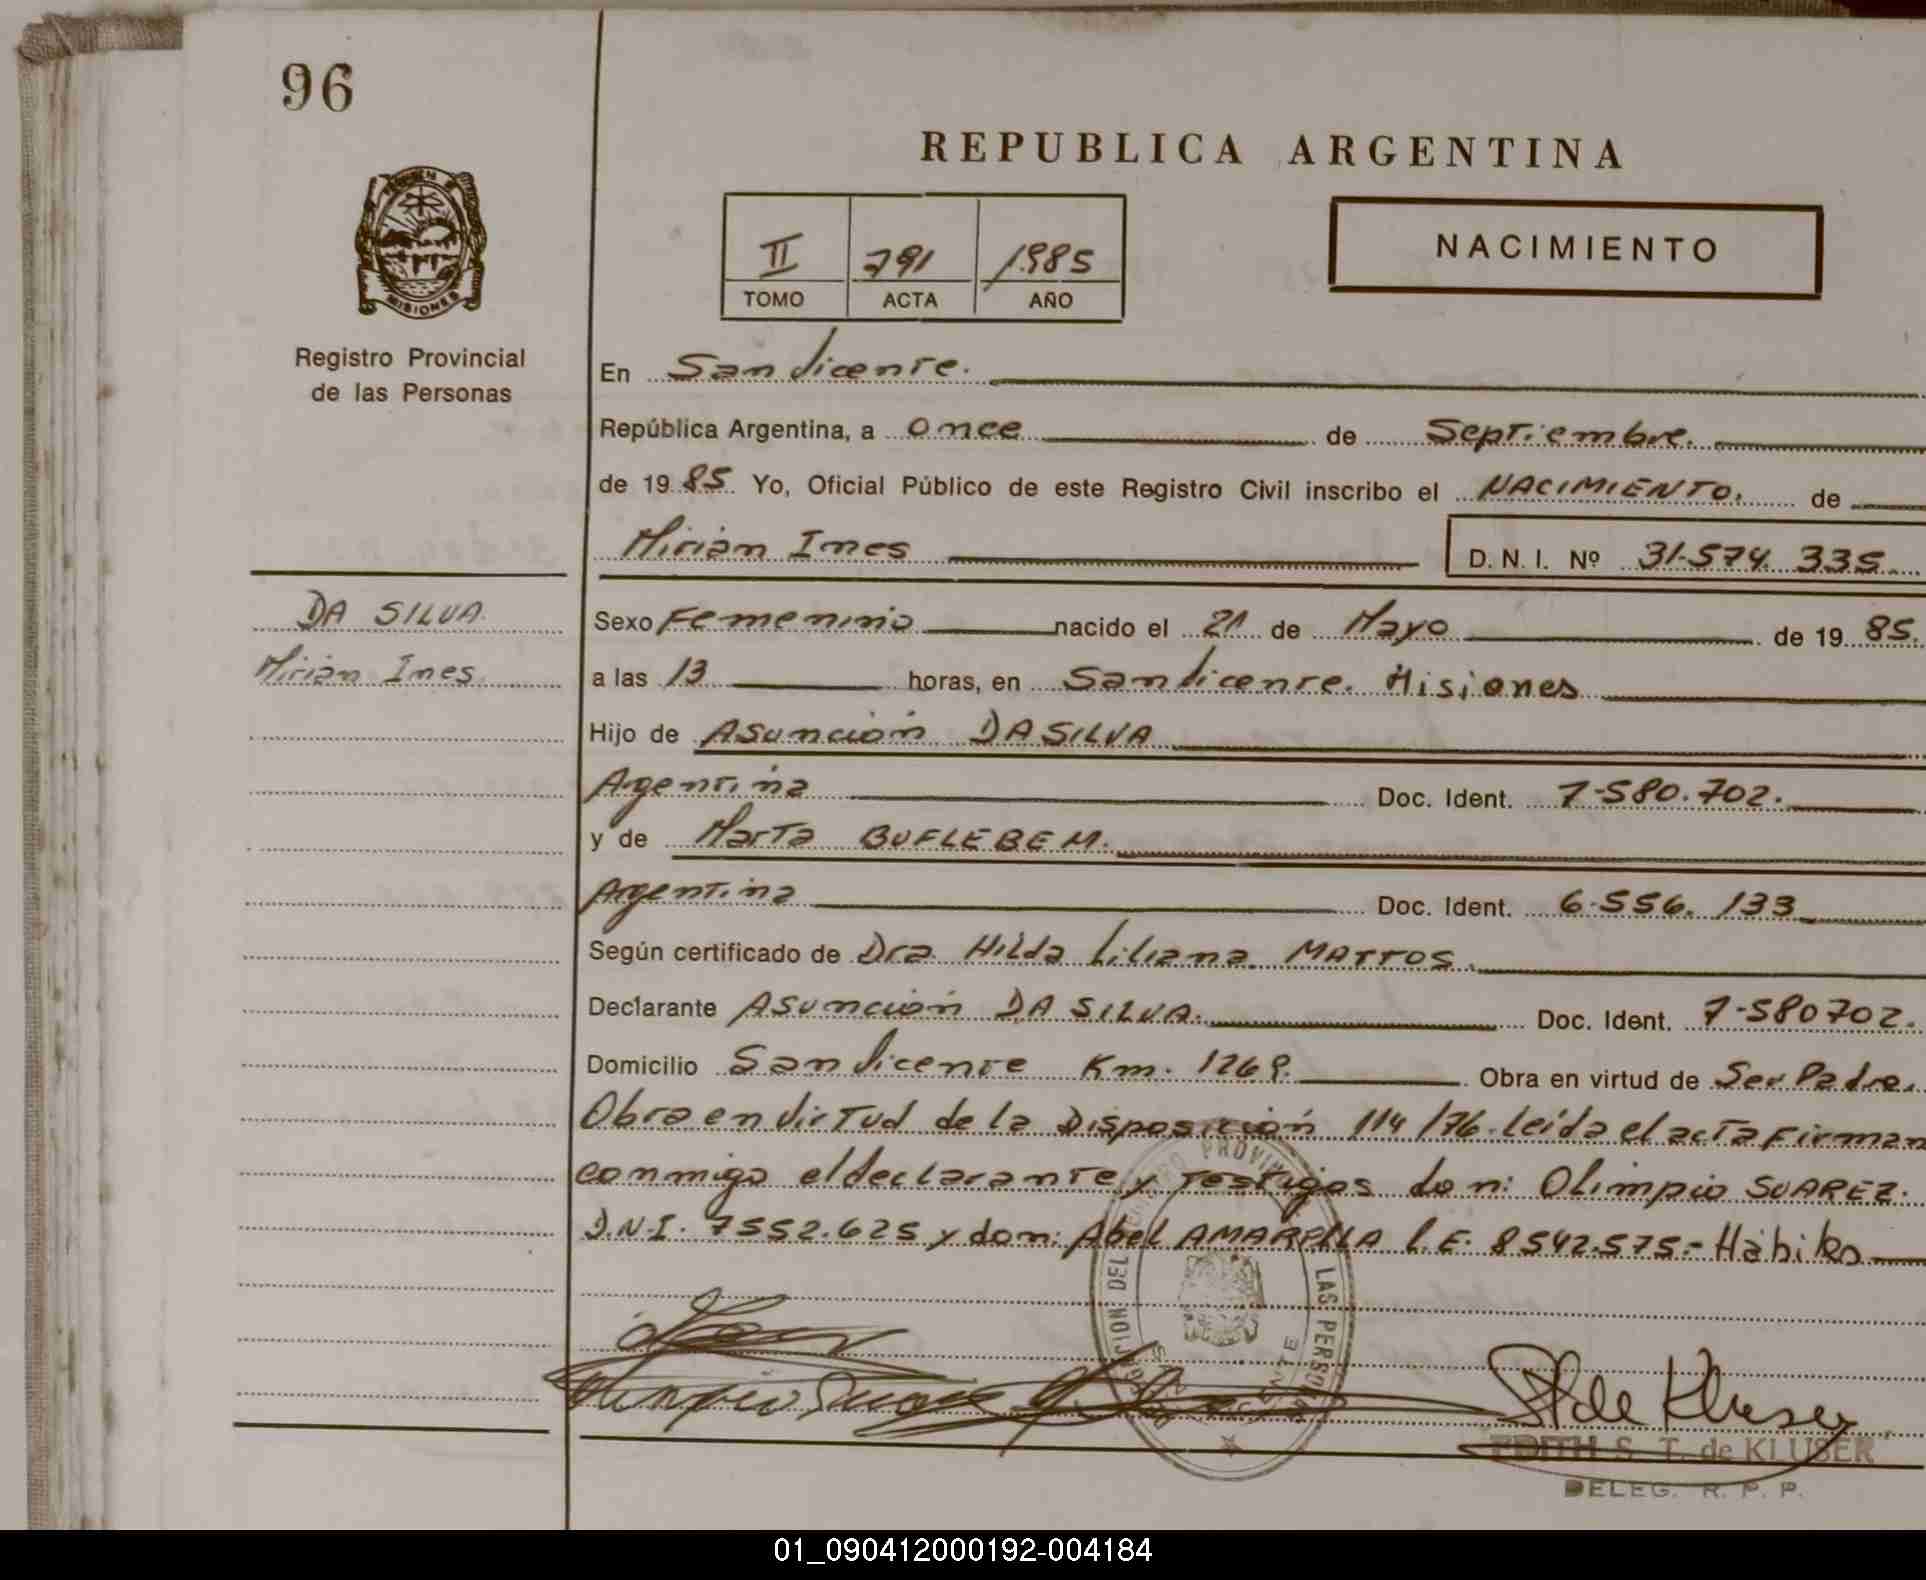 96
REPUBLICA ARGENTINA
MISIONES
Registro Provincial
de las Personas
II 791 1985
TOMO ACTA AÑO
NACIMIENTO
En San Vicente.
República Argentina, a once de Septiembre.
de 19 85 Yo, Oficial Público de este Registro Civil inscribo el NACIMIENTO. de
Mirian Ines D. N. I. Nº 31.574.335
DA SILVA
Mirian Ines
Sexo Femenino nacido el 21 de Mayo de 19 85.
a las 13 horas, en San Vicente. Misiones
Hijo de Asunción DA SILVA
Argentina Doc. Ident. 7-580.702.
y de Marta BUFLEBEM.
Argentina Doc. Ident. 6.556.133
Según certificado de Dra Hilda Liliana MATTOS.
Declarante Asunción DA SILVA. Doc. Ident. 7-580702.
Domicilio San Vicente Km. 1269. Obra en virtud de Ser Padre.
Obra en virtud de la Disposición 114/76. leída el acta firman
conmigo el declarante y testigos don: Olimpio SUAREZ.
D.N.I. 7552.625 y don: Abel AMARILLA L.E. 8542.575.- Hábiles
Olimpio Suarez
S T de Kluser
EDITH S. T. de KLUSER
DELEG. R. P. P.
01_090412000192-004184